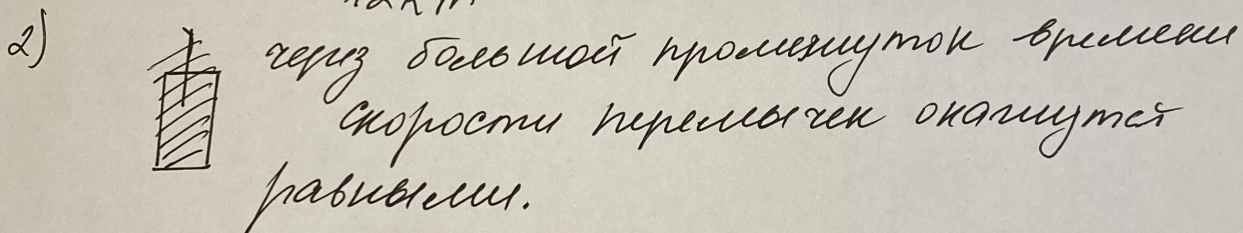 2) через большой промежуток времени
скорости перемычек окажутся
равными.